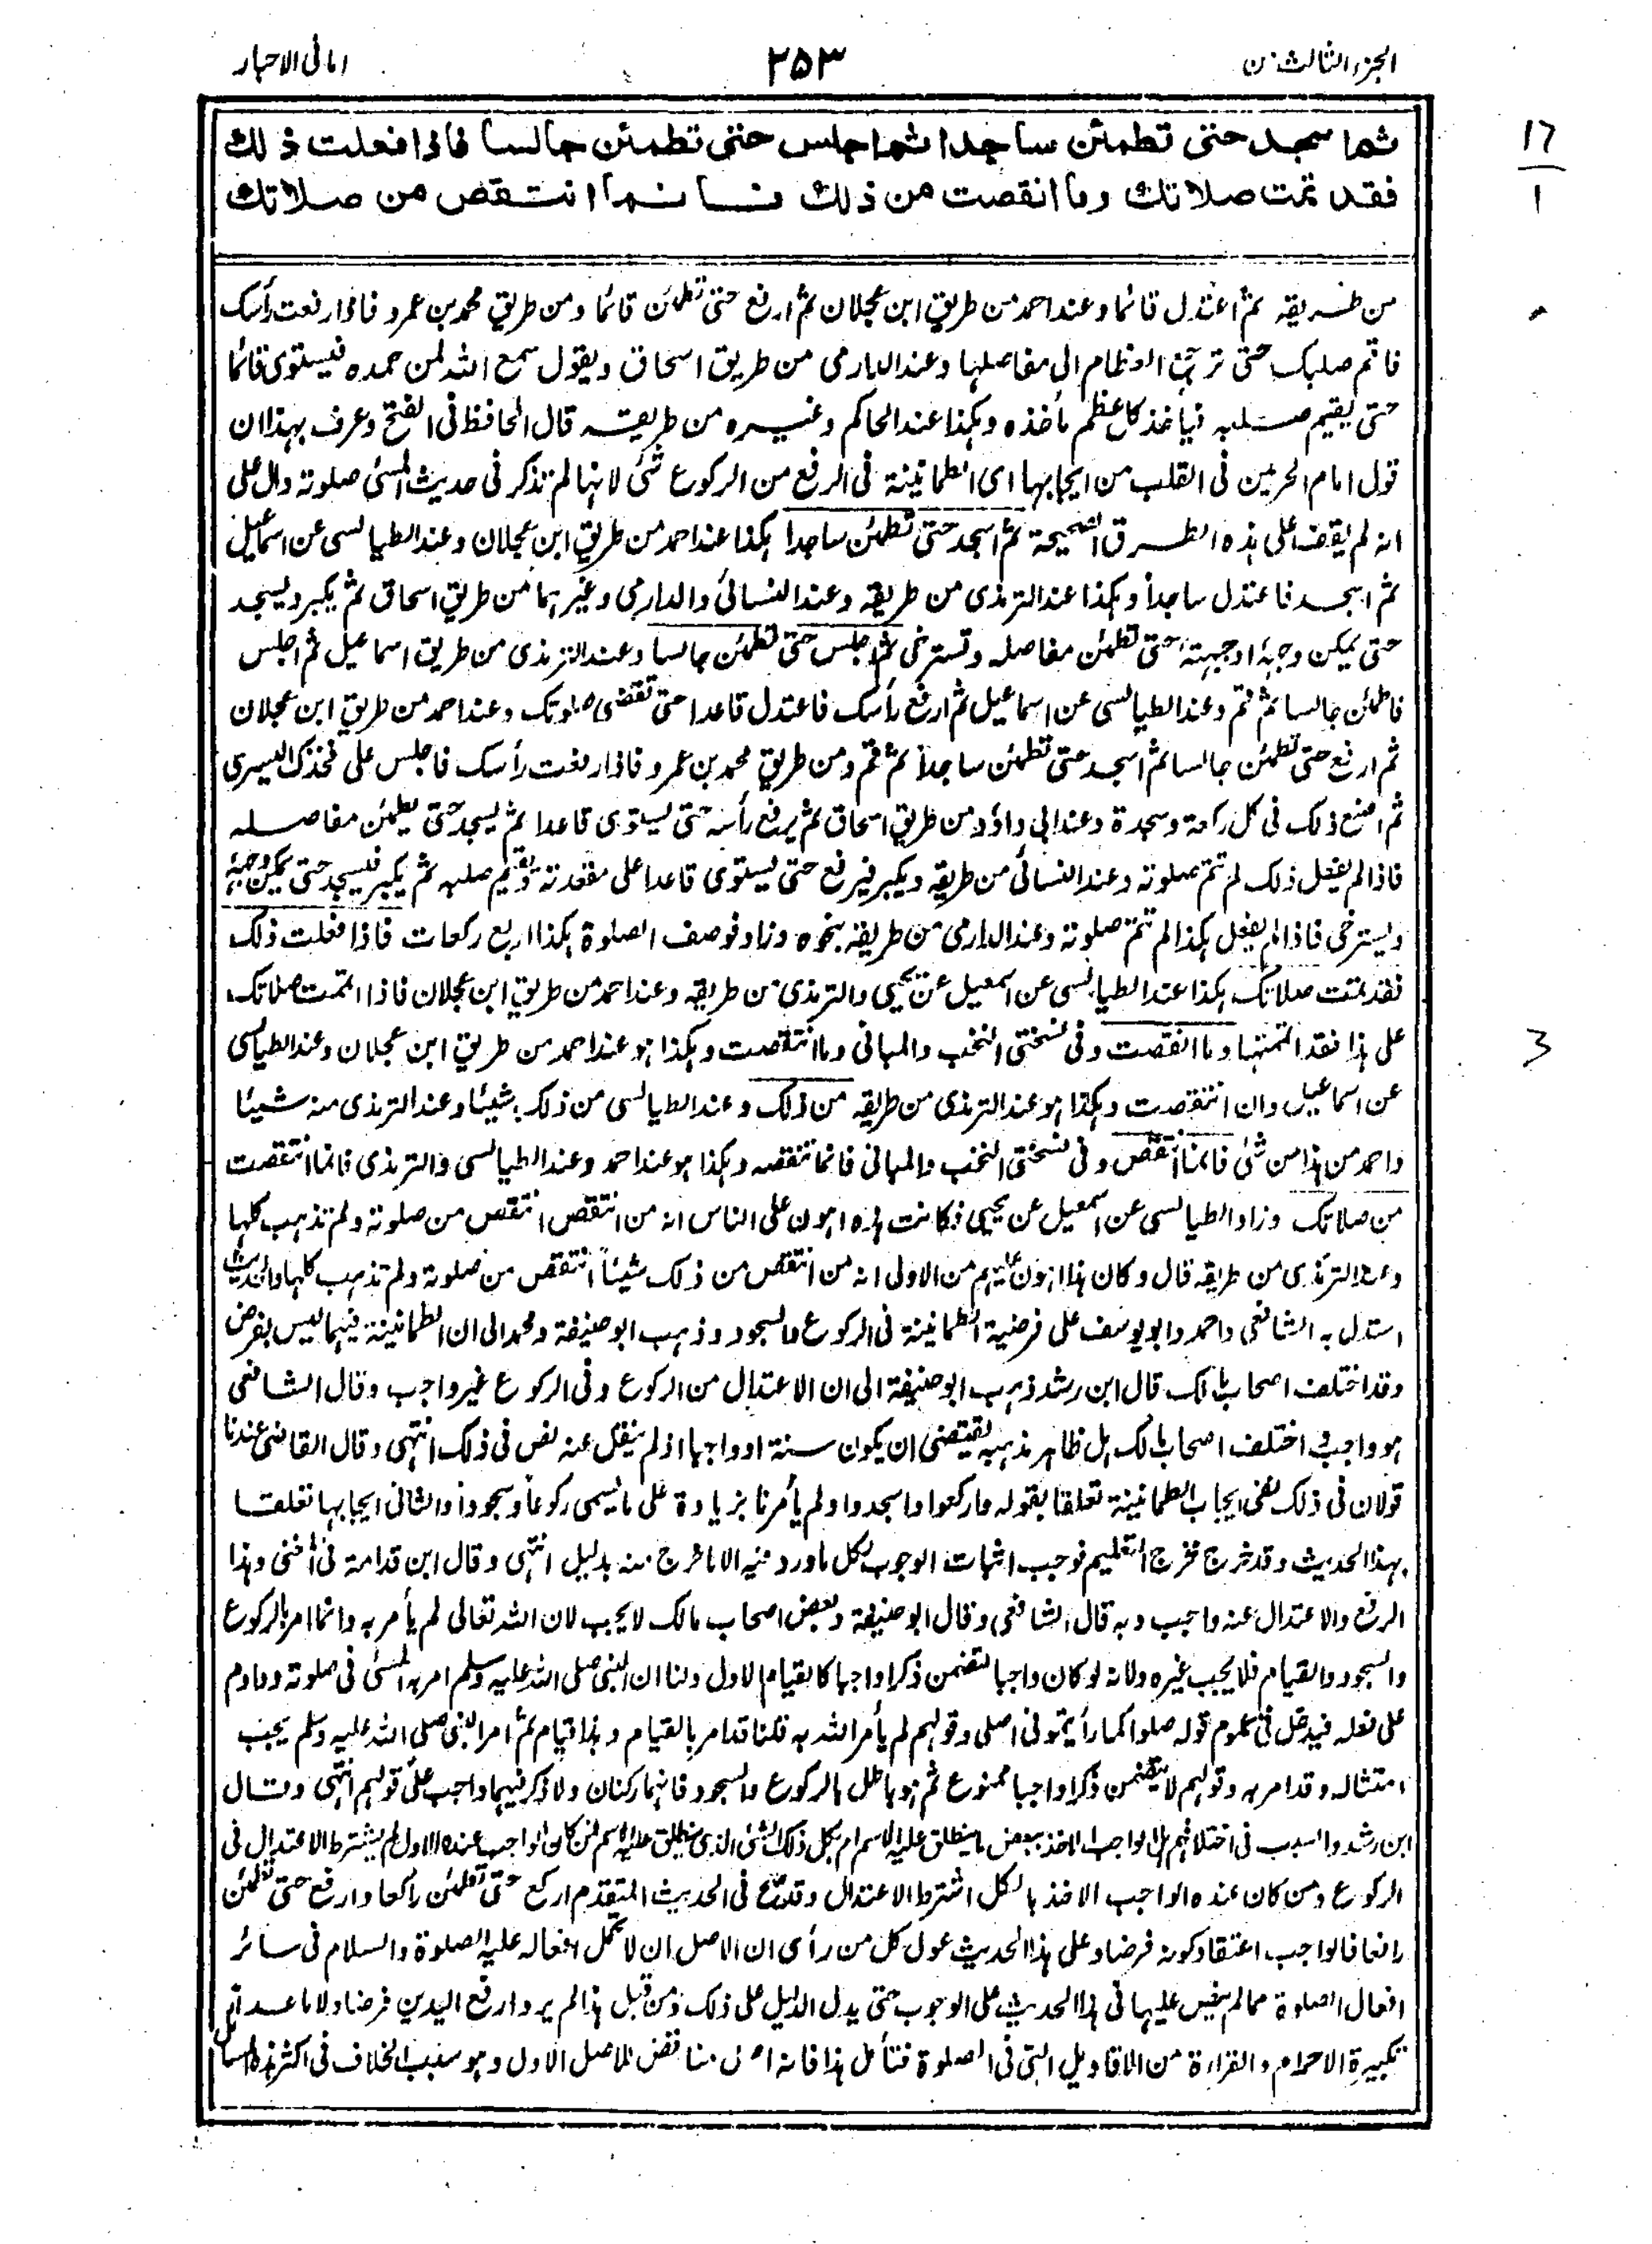 الجزء الثالث من
٢٥٣
امانی الاحبار
ثم اسجد حتى تطمئن ساجدا ثم اجلس حتى تطمئن جالسا فاذا فعلت ذلك
فقد تمت صلاتك وما انقصت من ذلك فانما انتقص من صلاتك
من طریقه ثم اعتدل قائما وعند احمد من طریق ابن عجلان ثم ارفع حتی تطمئن قائما ومن طریق محمد بن عمرو فاذا رفعت رأسک
فاقم صلبک حتی ترجع العظام الی مفاصلها وعند الدارمی من طریق اسحاق ویقول سمع الله لمن حمده فیستوی قائما
حتی یقیم صلبه فیاخذ کل عظم مأخذه وهکذا عند الحاکم وغیره من طریقه قال الحافظ فی الفتح وعرف بهذا ان
قول امام الحرمین فی القلب من ایجابها ای الطمانینة فی الرفع من الرکوع شئ لانها لم تذکر فی حدیث المسئ صلوته دال علی
انه لم یقف علی هذه الطرق الصحیحة ثم اسجد حتی تطمئن ساجدا هکذا عند احمد من طریق ابن عجلان وعند الطیالسی عن اسماعیل
ثم اسجد فاعتدل ساجدا وهکذا عند الترمذی من طریقه وعند النسائی والدارمی وغیرهما من طریق اسحاق ثم یکبر ویسجد
حتی یمکن وجهه او جبهته حتی تطمئن مفاصله وتسترخی ثم اجلس حتی تطمئن جالسا وعند الترمذی من طریق اسماعیل ثم اجلس
فاطمئن جالسا ثم قم وعند الطیالسی عن اسماعیل ثم ارفع رأسک فاعتدل قاعدا حتی تقضی صلوتک وعند احمد من طریق ابن عجلان
ثم ارفع حتی تطمئن جالسا ثم اسجد حتی تطمئن ساجدا ثم قم ومن طریق محمد بن عمرو فاذا رفعت رأسک فاجلس علی فخذک الیسری
ثم اصنع ذلک فی کل رکعة وسجدة وعند ابی داؤد من طریق اسحاق ثم یرفع رأسه حتی یستوی قاعدا ثم یسجد حتی یطمئن مفاصله
فاذا لم یفعل ذلک لم تتم صلوته وعند النسائی من طریقه ویکبر فیرفع حتی یستوی قاعدا علی مقعدته ویقیم صلبه ثم یکبر فیسجد حتی یمکن وجهه
ویسترخی فاذا لم یفعل هکذا لم تتم صلوته وعند الدارمی من طریقه بنحوه وزاد فوصف الصلوة هکذا اربع رکعات فاذا فعلت ذلک
فقد تمت صلاتک هکذا عند الطیالسی عن اسمعیل عن یحیی والترمذی من طریقه وعند احمد من طریق ابن عجلان فاذا اتممت صلاتک
علی هذا فقد اتممتها وما انقصت وفی نسختی النخب والمبانی وما انتقصت وهکذا هو عند احمد من طریق ابن عجلان وعند الطیالسی
عن اسماعیل وان انتقصت وهکذا هو عند الترمذی من طریقه من ذلک وعند الطیالسی من ذلک شیئا وعند الترمذی منه شیئا
واحمد من هذا من شئ فانما انتقص وفی نسختی النخب والمبانی فانما تنقصه وهکذا هو عند احمد وعند الطیالسی والترمذی فانما انتقصت
من صلاتک وزاد الطیالسی عن اسمعیل عن یحیی فکانت هذه اهون علی الناس انه من انتقص انتقص من صلوته ولم تذهب کلها
وعند الترمذی من طریقه قال وکان هذا اهون علیهم من الاولی انه من انتقص من ذلک شیئا انتقص من صلوته ولم تذهب کلها والحدیث
استدل به الشافعی واحمد وابو یوسف علی فرضیة الطمانینة فی الرکوع والسجود وذهب ابو حنیفة ومحمد الی ان الطمانینة فیهما لیس بفرض
وقد اختلف اصحاب مالک قال ابن رشد ذهب ابو حنیفة الی ان الاعتدال من الرکوع وفی الرکوع غیر واجب وقال الشافعی
هو واجب واختلف اصحاب مالک هل ظاهر مذهبه یقتضی ان یکون سنة او واجبا اذ لم ینقل عنه نص فی ذلک انتهی وقال القاضی عندنا
قولان فی ذلک نفی ایجاب الطمانینة تعلقا بقوله وارکعوا واسجدوا ولم یأمرنا بزیادة علی ما یسمی رکوعا وسجودا والثانی ایجابها تعلقا
بهذا الحدیث وقد خرج مخرج التعلیم فوجب اثبات الوجوب لکل ما ورد فیه الا ما خرج منه بدلیل انتهی وقال ابن قدامة فی المغنی وهذا
الرفع والاعتدال عنه واجب وبه قال الشافعی وقال ابو حنیفة وبعض اصحاب مالک لا یجب لان الله تعالی لم یأمر به وانما امر بالرکوع
والسجود والقیام فلا یجب غیره ولانه لو کان واجبا لتضمن ذکرا واجبا کالقیام الاول ولنا ان النبی صلی الله علیه وسلم امر به المسئ فی صلوته وداوم
علی فعله فیدخل فی عموم قوله صلوا کما رأیتمونی اصلی وقولهم لم یأمر الله به قلنا قد امر بالقیام وهذا قیام ثم امر النبی صلی الله علیه وسلم یجب
امتثاله وقد امر به وقولهم لا یتضمن ذکرا واجبا ممنوع ثم هو باطل بالرکوع والسجود فانهما رکنان ولا ذکر فیهما واجب علی قولهم انتهی وقال
ابن رشد والسبب فی اختلافهم هل الواجب الاخذ ببعض ما ینطلق علیه الاسم ام بکل ذلک الشئ الذی ینطلق علیه الاسم فمن کان الواجب عنده الاول لم یشترط الاعتدال فی
الرکوع ومن کان عنده الواجب الاخذ بالکل اشترط الاعتدال وقد صح فی الحدیث المتقدم ارکع حتی تطمئن راکعا وارفع حتی تطمئن
رافعا فالواجب اعتقاد کونه فرضا وعلی هذا الحدیث عول کل من رأی ان الاصل ان لا تحمل افعاله علیه الصلوة والسلام فی سائر
افعال الصلوة مما لم ینص علیها فی هذا الحدیث علی الوجوب حتی یدل الدلیل علی ذلک ومن قبل هذا لم یروا رفع الیدین فرضا ولا ما عدا
تکبیرة الاحرام والقراءة من الاقاویل التی فی الصلوة فتأمل هذا فانه اصل مناقض للاصل الاول وهو سبب الخلاف فی اکثر هذه المسائل